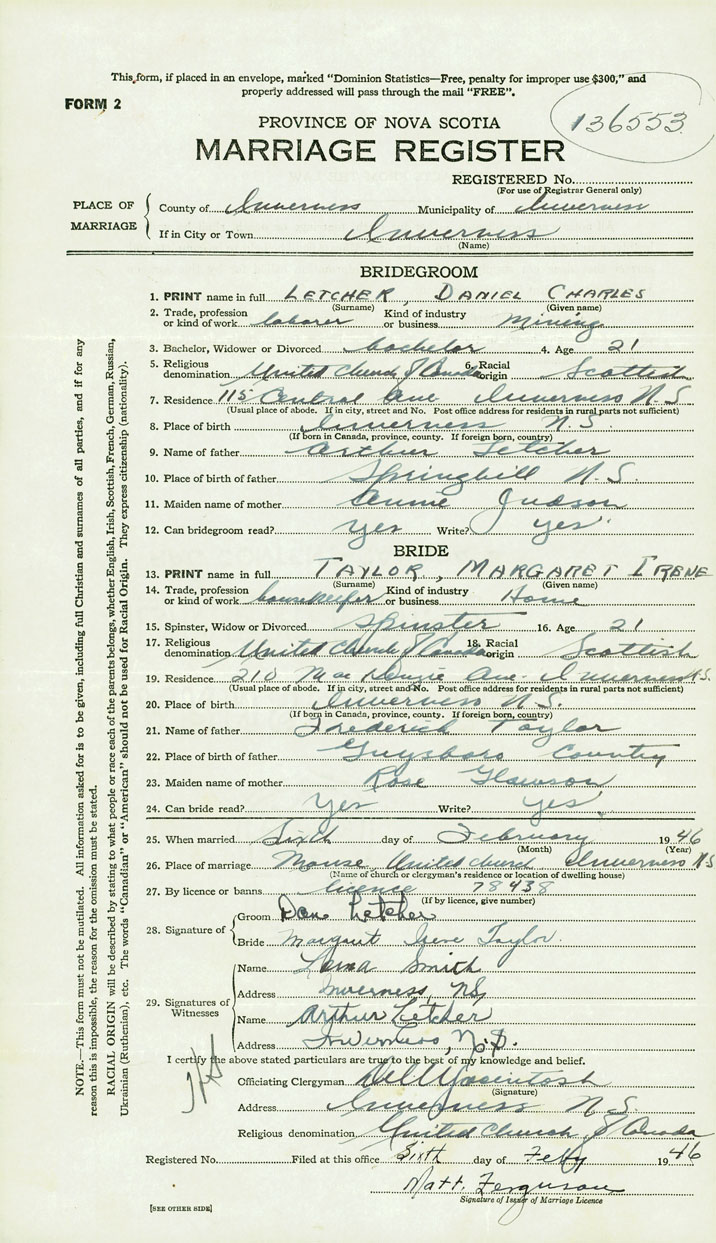 This form, if placed in an envelope, marked “Dominion Statistics—Free, penalty for improper use $300,” and
properly addressed will pass through the mail “FREE”.
FORM 2
136553
PROVINCE OF NOVA SCOTIA
MARRIAGE REGISTER
REGISTERED No.
(For use of Registrar General only)
PLACE OF MARRIAGE
County of Inverness Municipality of Inverness
If in City or Town Inverness
(Name)
BRIDEGROOM
1. PRINT name in full LETCHER, DANIEL CHARLES
(Surname) (Given name)
2. Trade, profession or kind of work laborer Kind of industry or business mining
3. Bachelor, Widower or Divorced bachelor 4. Age 21
5. Religious denomination United Church of Canada 6. Racial origin Scottish
7. Residence 115 Central Ave Inverness N.S.
(Usual place of abode. If in city, street and No. Post office address for residents in rural parts not sufficient)
8. Place of birth Inverness N.S.
(If born in Canada, province, county. If foreign born, country)
9. Name of father Arthur Letcher
10. Place of birth of father Springhill N.S.
11. Maiden name of mother Annie Judson
12. Can bridegroom read? Yes Write? yes
BRIDE
13. PRINT name in full TAYLOR, MARGARET IRENE
(Surname) (Given name)
14. Trade, profession or kind of work housekeeper Kind of industry or business Home
15. Spinster, Widow or Divorced Spinster 16. Age 21
17. Religious denomination United Church of Canada 18. Racial origin Scottish
19. Residence 210 MacKenzie Ave. Inverness N.S.
(Usual place of abode. If in city, street and No. Post office address for residents in rural parts not sufficient)
20. Place of birth Inverness N.S.
(If born in Canada, province, county. If foreign born, country)
21. Name of father Frederick Taylor
22. Place of birth of father Guysboro County
23. Maiden name of mother Rose
24. Can bride read? Yes Write? yes
25. When married Sixth day of February 1946
(Month) (Year)
26. Place of marriage Manse United Church Inverness N.S.
(Name of church or clergyman's residence or location of dwelling house)
27. By licence or banns licence 78438
(If by licence, give number)
28. Signature of
Groom Dan Letcher
Bride Margaret Irene Taylor
29. Signatures of Witnesses
Name Lena Smith
Address Inverness, NS,
Name Arthur Letcher
Address Inverness, N.S.
I certify the above stated particulars are true to the best of my knowledge and belief.
Officiating Clergyman
(Signature)
Address Inverness N.S.
Religious denomination United Church of Canada
Registered No. Filed at this office Sixth day of Feby 1946
Matt. Ferguson
Signature of Issuer of Marriage Licence
[SEE OTHER SIDE]
NOTE.—This form must not be mutilated. All information asked for is to be given, including full Christian and surnames of all parties, and if for any
reason this is impossible, the reason for the omission must be stated.
RACIAL ORIGIN will be described by stating to what people or race each of the parents belongs, whether English, Irish, Scottish, French, German, Russian,
Ukrainian (Ruthenian), etc. The words “Canadian” or “American” should not be used for Racial Origin. They express citizenship (nationality).